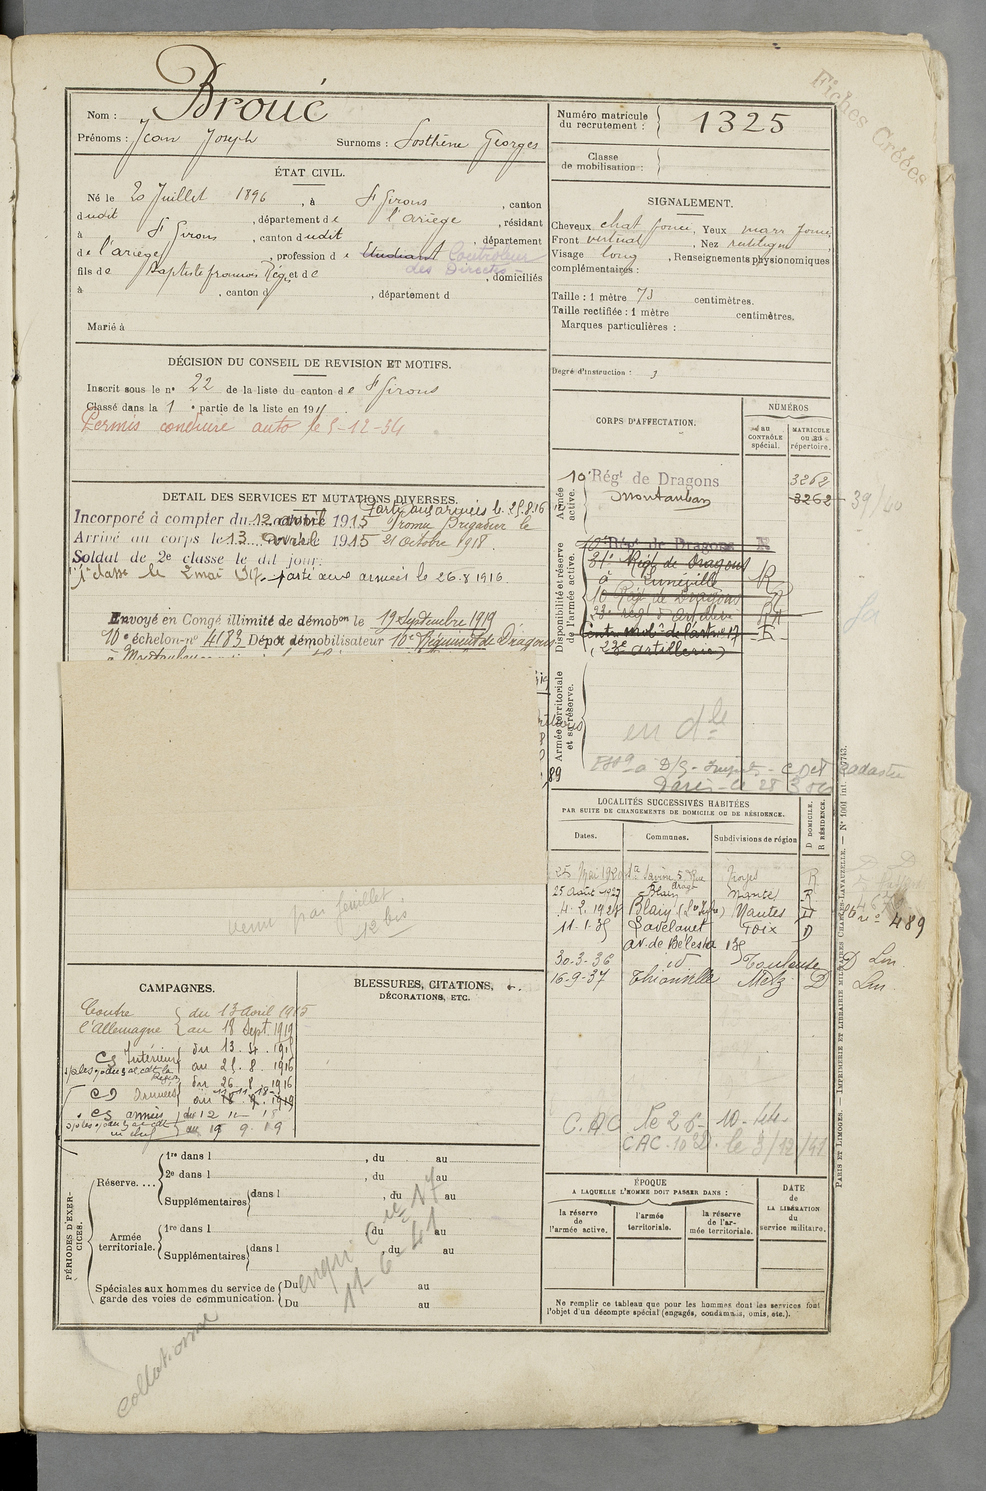 Fiches Créées
Nom : Broué
Prénoms : Jean Joseph Surnoms : Sosthène Georges
Numéro matricule du recrutement : 1325
Classe de mobilisation :
ÉTAT CIVIL.
Né le 20 Juillet 1896, à St Girons, canton
dudit, département de l'ariège, résidant
à St Girons, canton dudit, département
de l'ariège, profession de Etudiant Controleur
des Directes
fils de Baptiste françois Régis et de, domiciliés
à, canton d, département d
Marié à
SIGNALEMENT.
Cheveux chat foncé, Yeux marr foncé
Front vertical, Nez rectiligne
Visage long, Renseignements physionomiques
complémentaires :
Taille : 1 mètre 73 centimètres.
Taille rectifiée : 1 mètre centimètres.
Marques particulières :
Degré d'instruction : 3
DÉCISION DU CONSEIL DE REVISION ET MOTIFS.
Inscrit sous le no 22 de la liste du canton de St Girons
Classé dans la 1 e partie de la liste en 191
Permis conduire auto le 5-12-34
CORPS D'AFFECTATION.
NUMÉROS
au CONTRÔLE spécial.
MATRICULE ou au répertoire.
Armée active.
10e Régt de Dragons
Montauban
3262
3262
39/40
DETAIL DES SERVICES ET MUTATIONS DIVERSES.
Parti aux armées le 25.8.16
Incorporé à compter du 12 avril 1915 Promu Brigadier le
Arrivé au corps le 13 avril 1915 21 octobre 1918.
Soldat de 2e classe le dit jour.
1ere classe le 2 mai 1916 parti aux armées le 26.8 1916.
Envoyé en Congé illimité de démobon le 19 septembre 1919
10e échelon-no 4183 Dépôt démobilisateur 10e Régiment de Dragons
Disponibilité et réserve de l'armée active.
10e Régt de Dragons
31e Régt de Dragons
à Lunéville R
10 Régt de Dragons R
Centre mobe de l'artie 17 R
(23e artillerie)
Armée territoriale et sa réserve.
en dle
89
Paris - le 28
cadastre
venu par feuillet
12 bis
LOCALITÉS SUCCESSIVES HABITÉES
PAR SUITE DE CHANGEMENTS DE DOMICILE OU DE RÉSIDENCE.
Dates. Communes. Subdivisions de région D DOMICILE. R RÉSIDENCE.
25 Mai 1920 Ste Savine 5 Rue Troyes R
25 août 1927 Blain Nantes R
4.2.1928 Blain (Lre Infre) Nantes D
11.1.35 Lavelanet Foix D
av. de Bélesta 135
30-3-36 id Toulouse D Lui
16-9-37 Thionville Metz D Lui
489
C.A.C le 26-10-
CAC. le 3/12/41
CAMPAGNES.
Contre { du 13 avril 1915
l'Allemagne { au 18 Sept. 1919
CS Intérieur du 13. 4. 1915
au 25. 8. 1916
CD Armées du 26. 8. 1916
au 18 9 1919
CS armées du 12 11 18
au 19 9. 19
BLESSURES, CITATIONS,
DÉCORATIONS, ETC.
PÉRIODES D'EXERCICES.
Réserve.... 1re dans l, du au
2e dans l, du au
Supplémentaires dans l, du au
Armée territoriale. 1re dans l du au
Supplémentaires dans l, du au
Spéciales aux hommes du service de garde des voies de communication. Du au
Du au
11-6-41
collationné
ÉPOQUE
A LAQUELLE L'HOMME DOIT PASSER DANS :
la réserve de l'armée active.
l'armée territoriale.
la réserve de l'armée territoriale.
DATE DE LA LIBÉRATION du service militaire.
Ne remplir ce tableau que pour les hommes dont les services font
l'objet d'un décompte spécial (engagés, condamnés, omis, etc.).
PARIS ET LIMOGES. — IMPRIMERIE ET LIBRAIRIE MILITAIRES CHARLES-LAVAUZELLE. — No 1001 int.